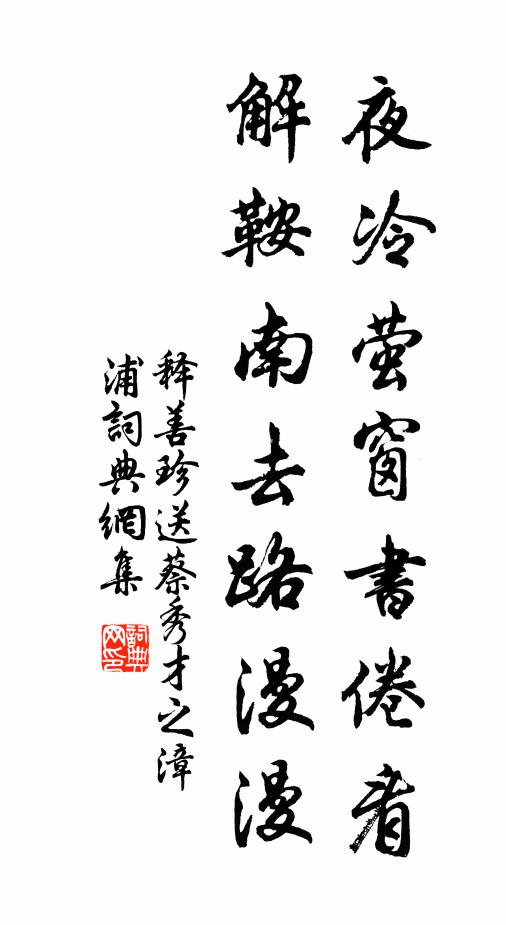 夜冷萤窗書倦看
解鞍南去路漫漫
释善珍送蔡秀才之漳
浦詞典網集
詞典网印